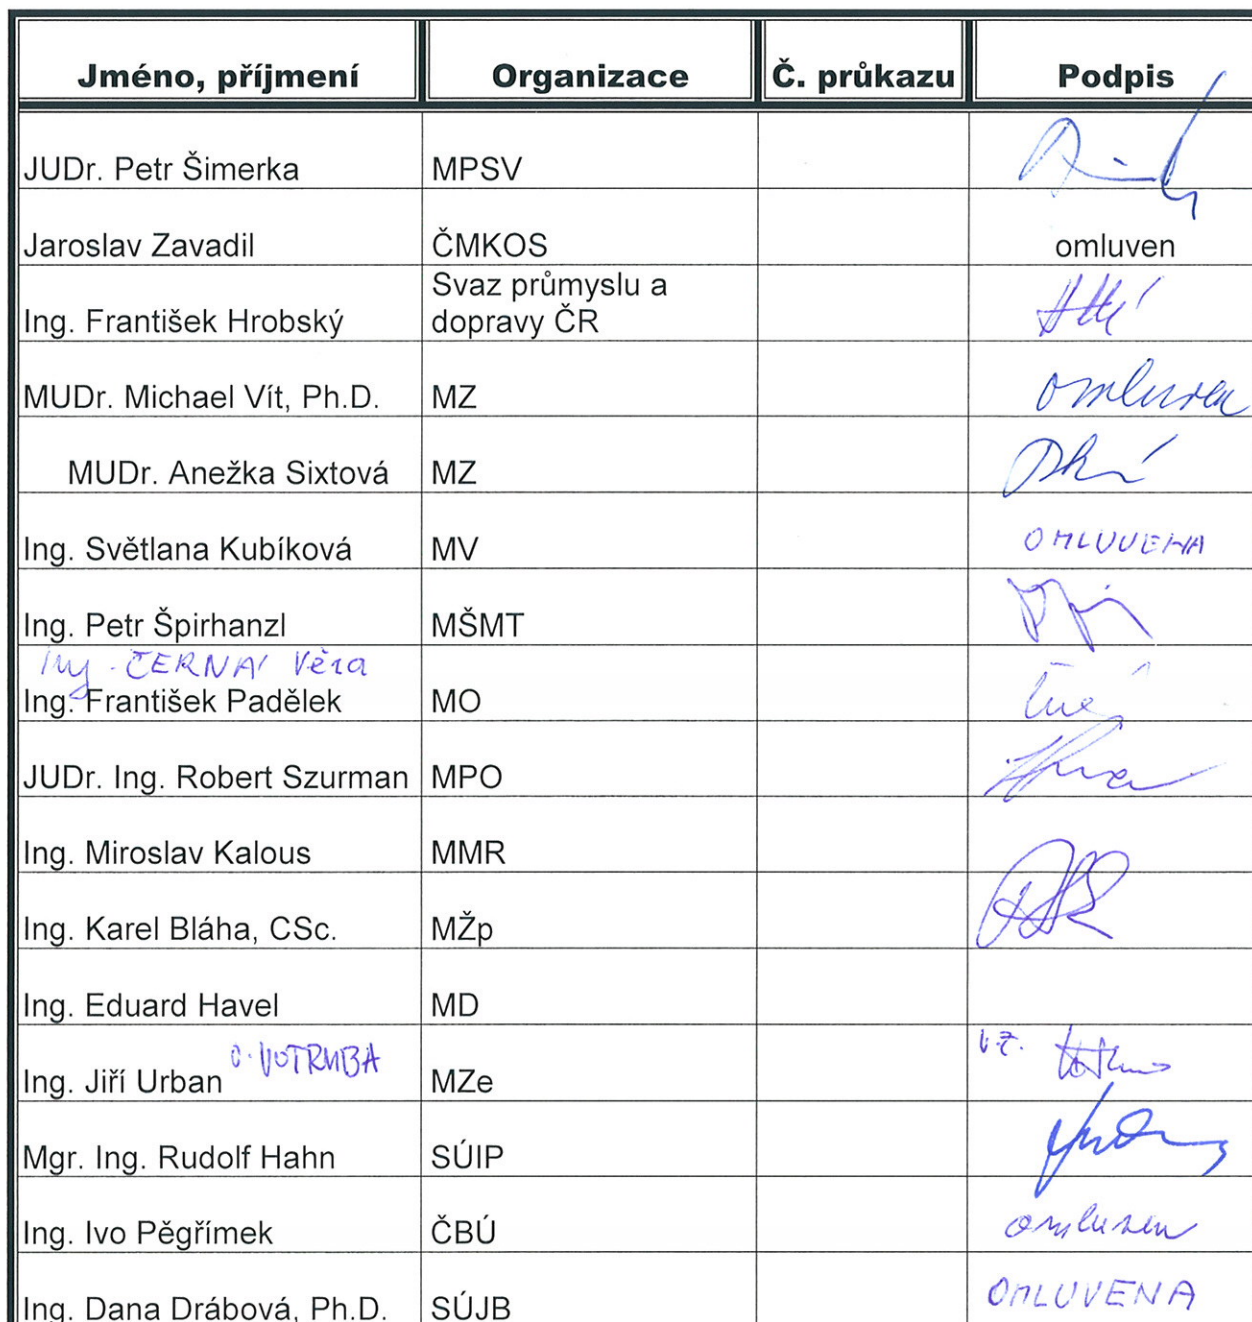 Jméno, příjmení Organizace Č. průkazu Podpis
JUDr. Petr Šimerka MPSV
Jaroslav Zavadil ČMKOS omluven
Ing. František Hrobský Svaz průmyslu a
dopravy ČR
MUDr. Michael Vít, Ph.D. MZ omluven
MUDr. Anežka Sixtová MZ
Ing. Světlana Kubíková MV OMLUVENA
Ing. Petr Špirhanzl MŠMT
Ing. ČERNÁ Věra
Ing. František Padělek MO
JUDr. Ing. Robert Szurman MPO
Ing. Miroslav Kalous MMR
Ing. Karel Bláha, CSc. MŽp
Ing. Eduard Havel MD
Ing. Jiří Urban VOTRUBA MZe v.z.
Mgr. Ing. Rudolf Hahn SÚIP
Ing. Ivo Pěgřímek ČBÚ omluven
Ing. Dana Drábová, Ph.D. SÚJB OMLUVENA